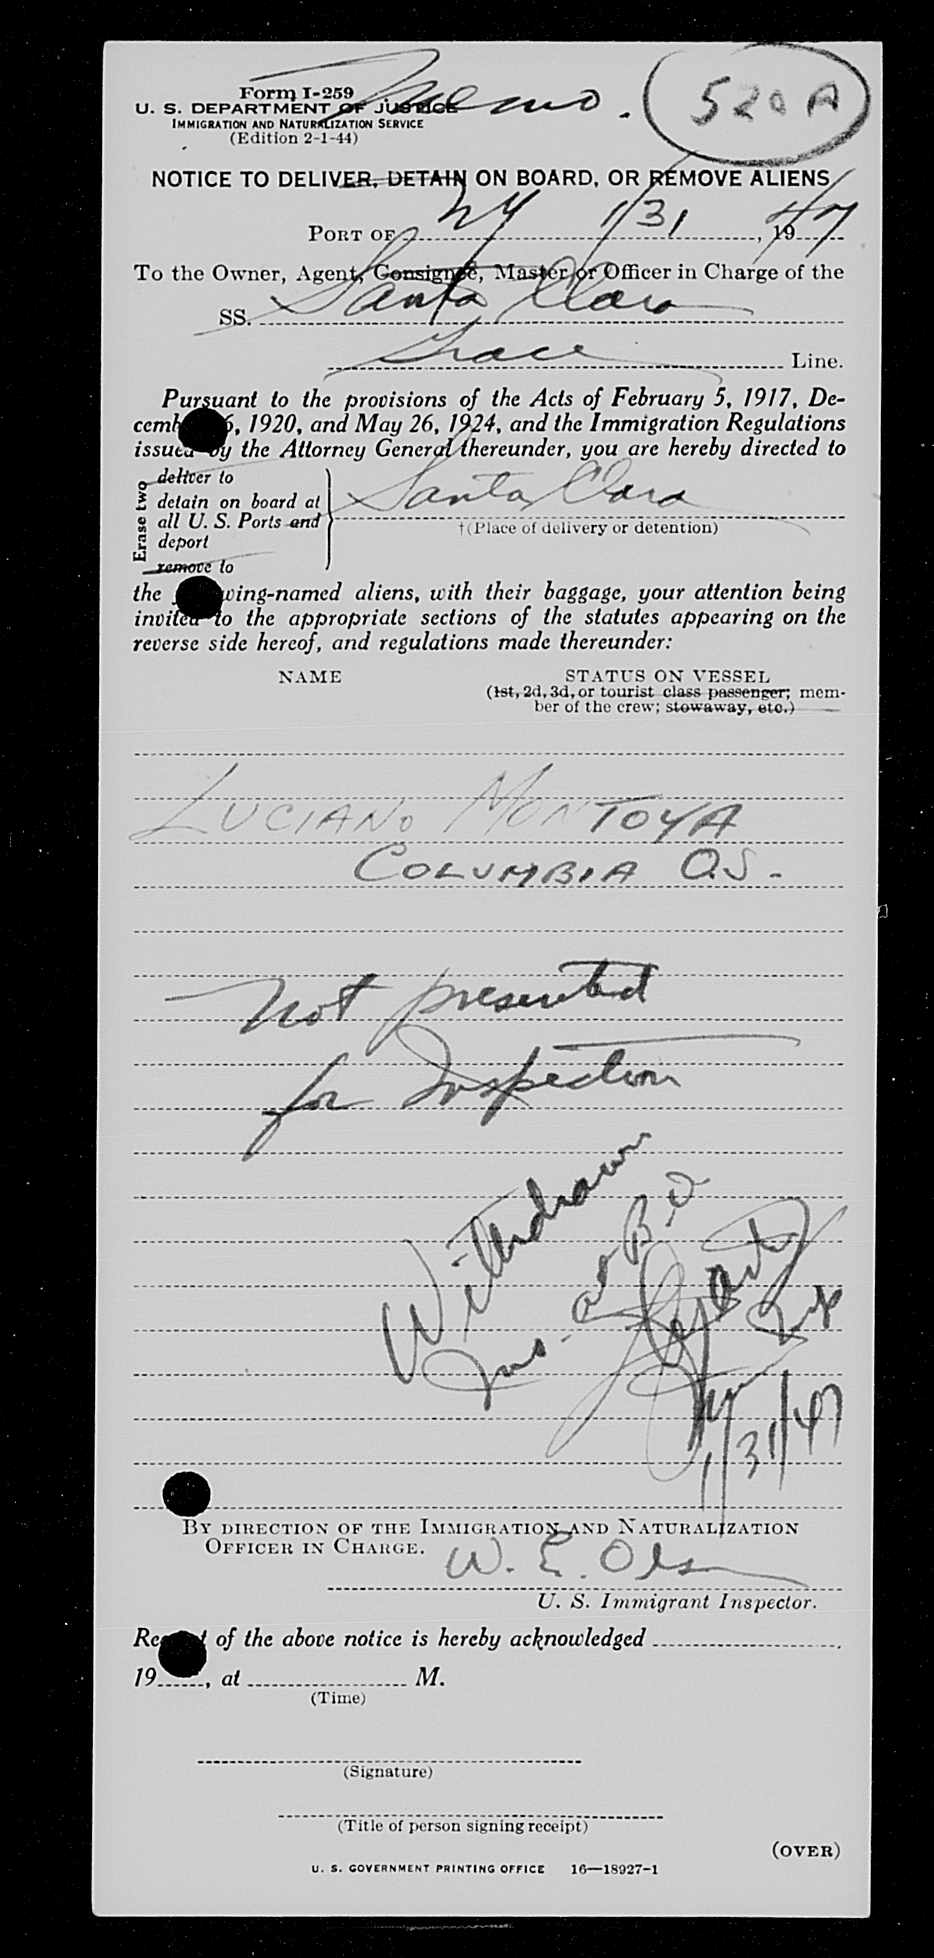 Memo.
520 A
Form I-259
U. S. DEPARTMENT OF JUSTICE
IMMIGRATION AND NATURALIZATION SERVICE
(Edition 2-1-44)
NOTICE TO DELIVER, DETAIN ON BOARD, OR REMOVE ALIENS
PORT OF NY 1/31, 1947
To the Owner, Agent, Consignee, Master or Officer in Charge of the
SS. Santa Clara
Grace Line.
Pursuant to the provisions of the Acts of February 5, 1917, De-
6, 1920, and May 26, 1924, and the Immigration Regulations
issued by the Attorney General thereunder, you are hereby directed to
Erase two
deliver to
detain on board at
all U. S. Ports and
deport
remove to
Santa Clara
†(Place of delivery or detention)
the wing-named aliens, with their baggage, your attention being
invited to the appropriate sections of the statutes appearing on the
reverse side hereof, and regulations made thereunder:
NAME STATUS ON VESSEL
(1st, 2d, 3d, or tourist class passenger; mem-
ber of the crew; stowaway, etc.)
LUCIANO MONTOYA
COLUMBIA O.S.
Not presented
for Inspection
Withdrawn
Ins.
1/31/47
BY DIRECTION OF THE IMMIGRATION AND NATURALIZATION
OFFICER IN CHARGE. W. E. Olsen
U. S. Immigrant Inspector.
Re t of the above notice is hereby acknowledged
19 , at M.
(Time)
(Signature)
(Title of person signing receipt)
(OVER)
U. S. GOVERNMENT PRINTING OFFICE 16—18927-1